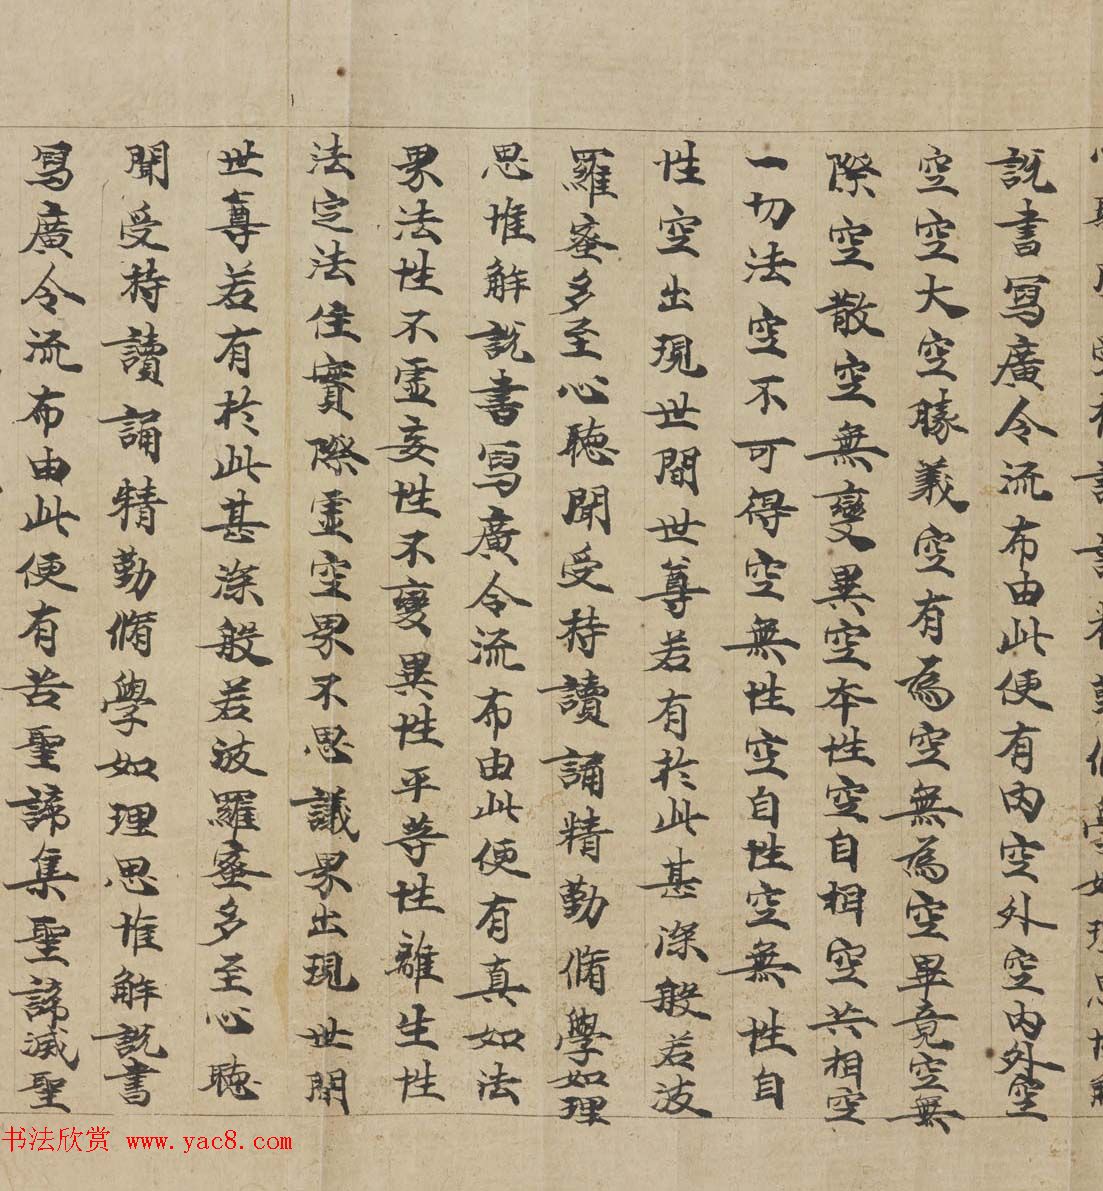 說書寫廣令流布由此便有內空外空內外空
空空大空勝義空有為空無為空畢竟空無
際空散空無變異空本性空自相空共相空
一切法空不可得空無性空自性空無性自
性空出現世間世尊若有於此甚深般若波
羅蜜多至心聽聞受持讀誦精勤脩學如理
思惟解說書寫廣令流布由此便有真如法
界法性不虛妄性不變異性平等性離生性
法定法住實際虛空界不思議界出現世間
世尊若有於此甚深般若波羅蜜多至心聽
聞受持讀誦精勤脩學如理思惟解說書
寫廣令流布由此便有苦聖諦集聖諦滅聖
书法欣赏 www.yac8.com